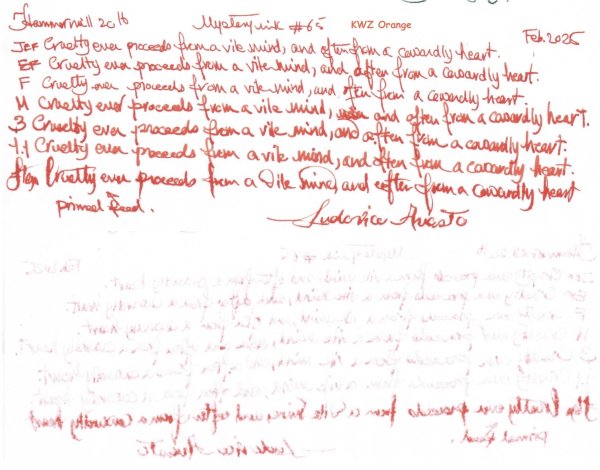 Hammermill 20lb Mystery ink #65 KWZ Orange Feb. 2025
JEF Cruelty ever proceeds from a vile mind, and often from a cowardly heart.
EF Cruelty ever proceeds from a vile mind, and often from a cowardly heart.
F Cruelty ever proceeds from a vile mind, and often from a cowardly heart.
M Cruelty ever proceeds from a vile mind, and often from a cowardly heart.
B Cruelty ever proceeds from a vile mind, and often from a cowardly heart.
1.1 Cruelty ever proceeds from a vile mind, and often from a cowardly heart.
Flex Cruelty ever proceeds from a vile mind, and often from a cowardly heart
primed feed.
Ludovico Ariosto